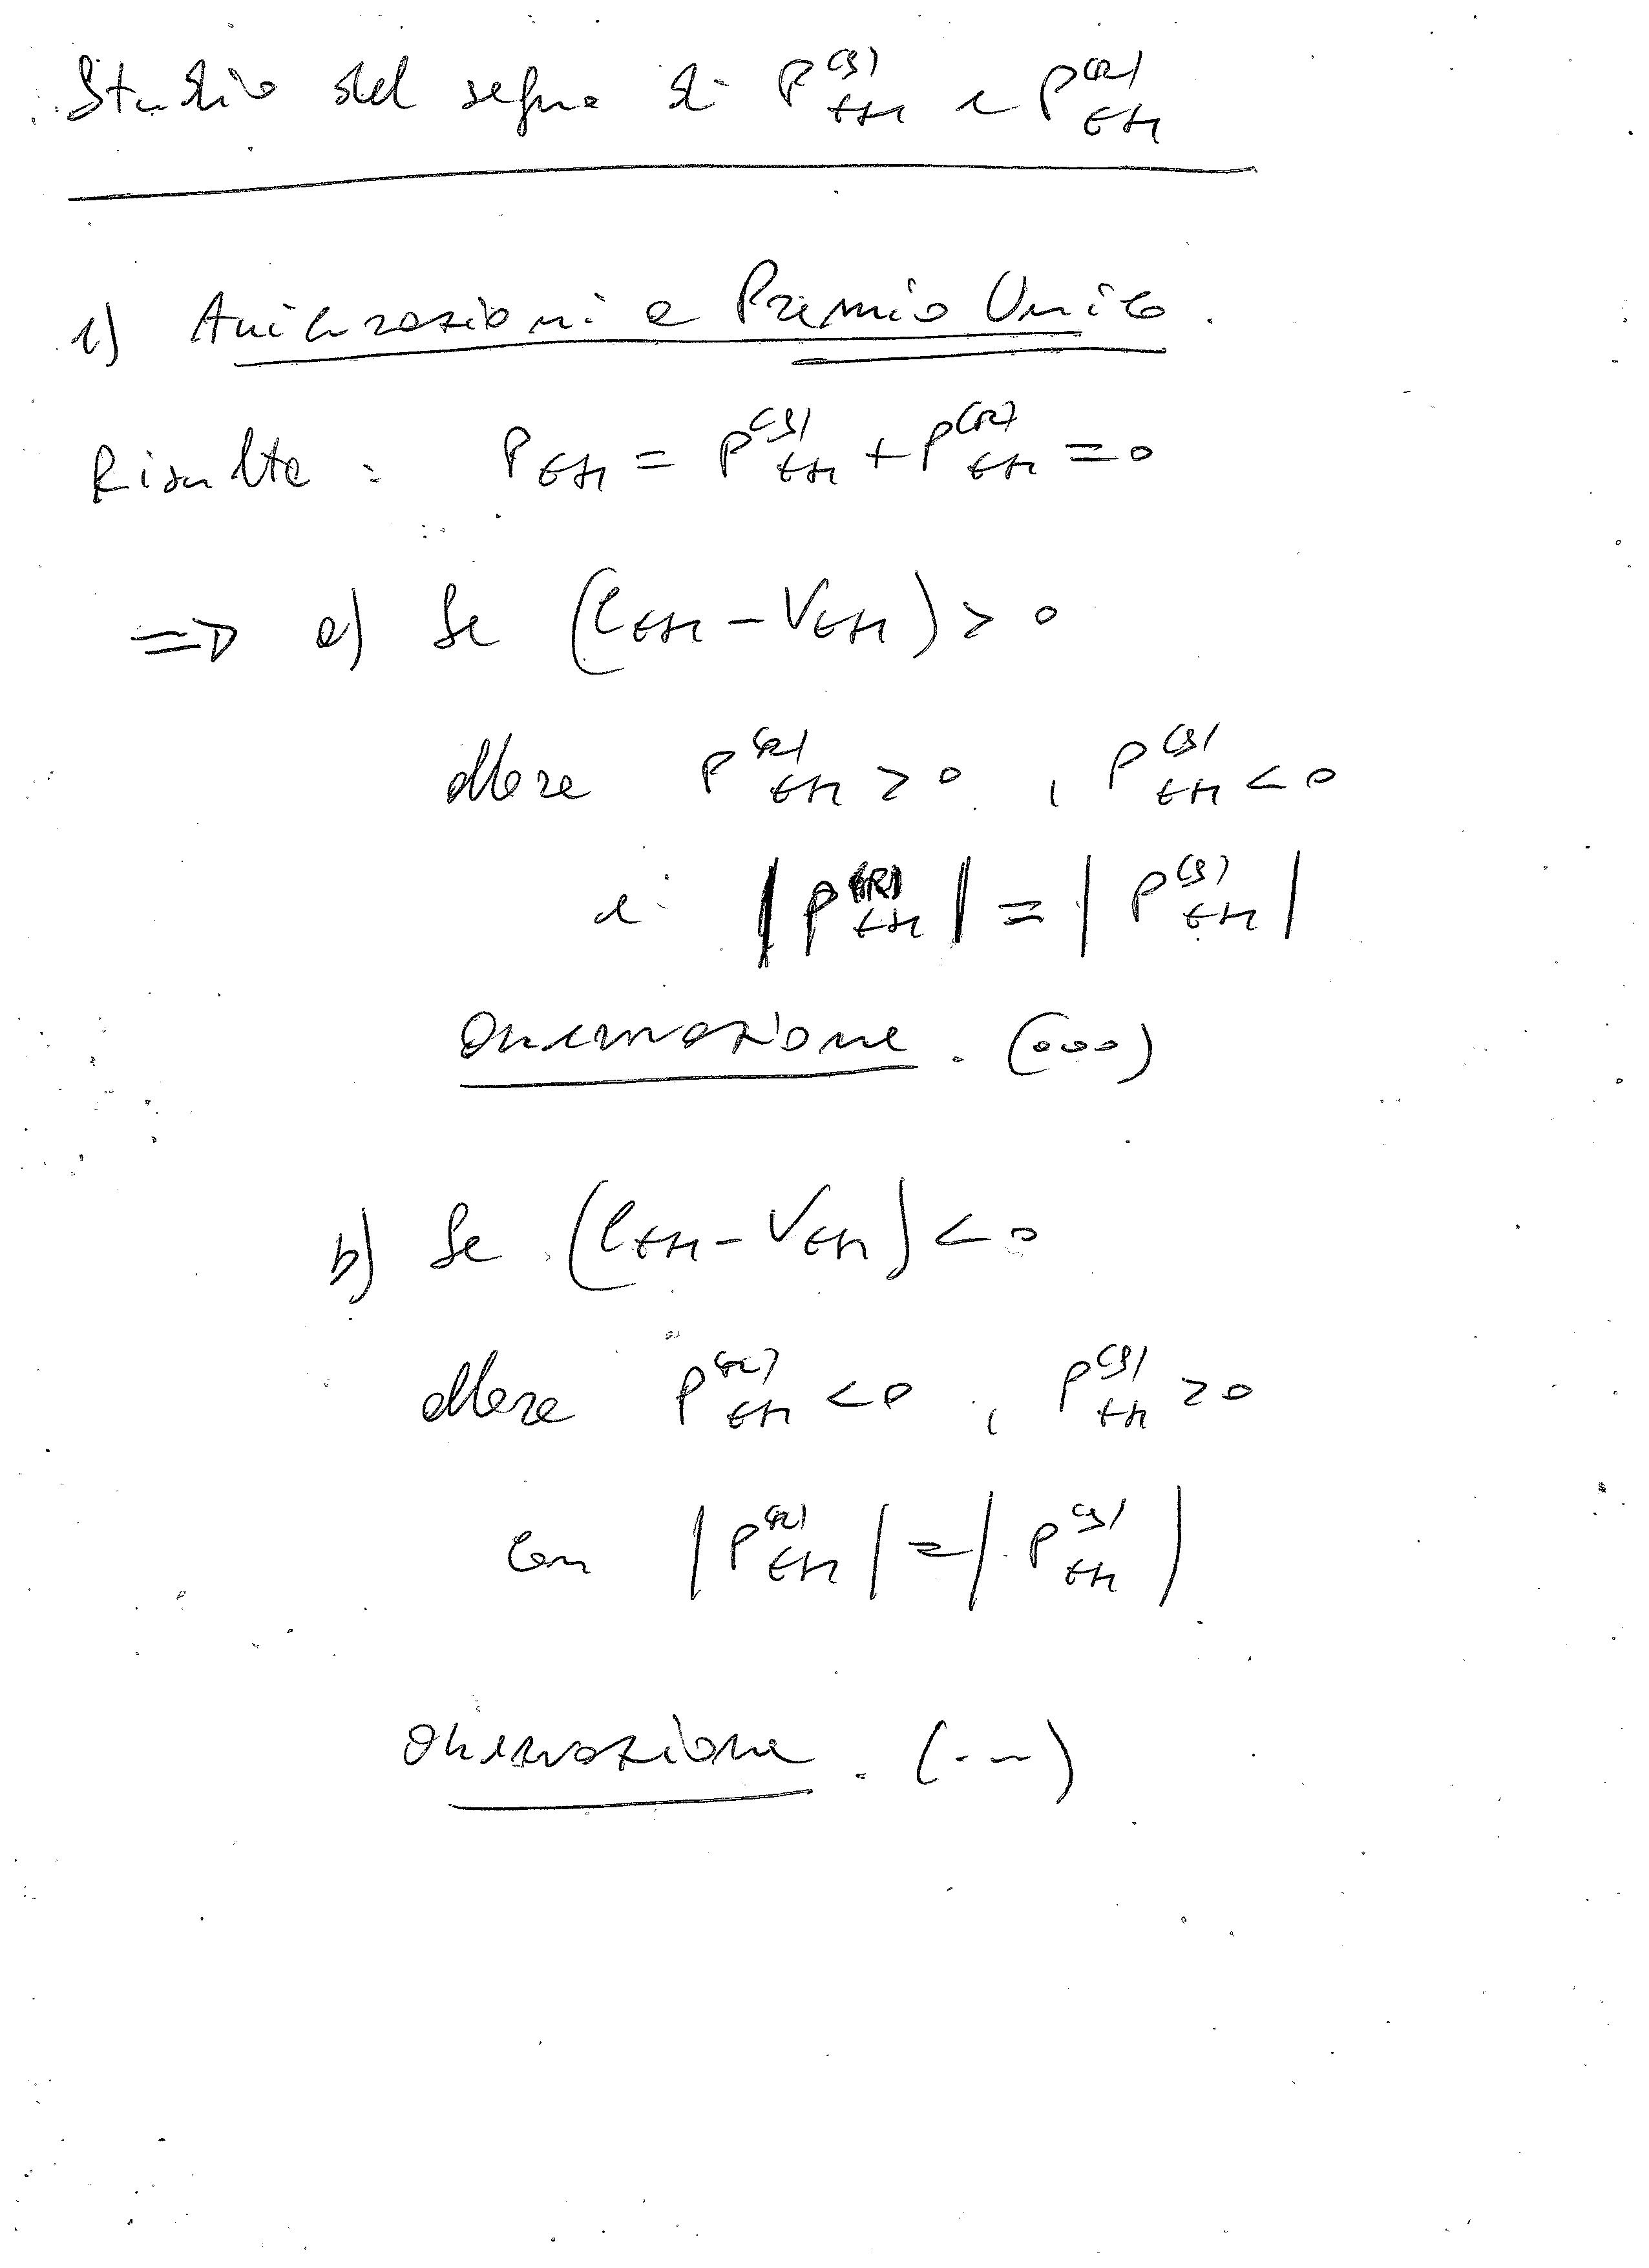 Studio del segno di P^(S)_t+1 e P^(R)_t+1
1) Assicurazioni a Premio Unico.
Risulta : P_t+1 = P^(S)_t+1 + P^(R)_t+1 = 0
=> a) Se (C_t+1 - V_t+1) > 0
allora P^(R)_t+1 > 0 , P^(S)_t+1 < 0
e |P^(R)_t+1| = |P^(S)_t+1|
Osservazione . (...)
b) Se (C_t+1 - V_t+1) < 0
allora P^(R)_t+1 < 0 , P^(S)_t+1 > 0
con |P^(R)_t+1| = |P^(S)_t+1|
Osservazione . (...)